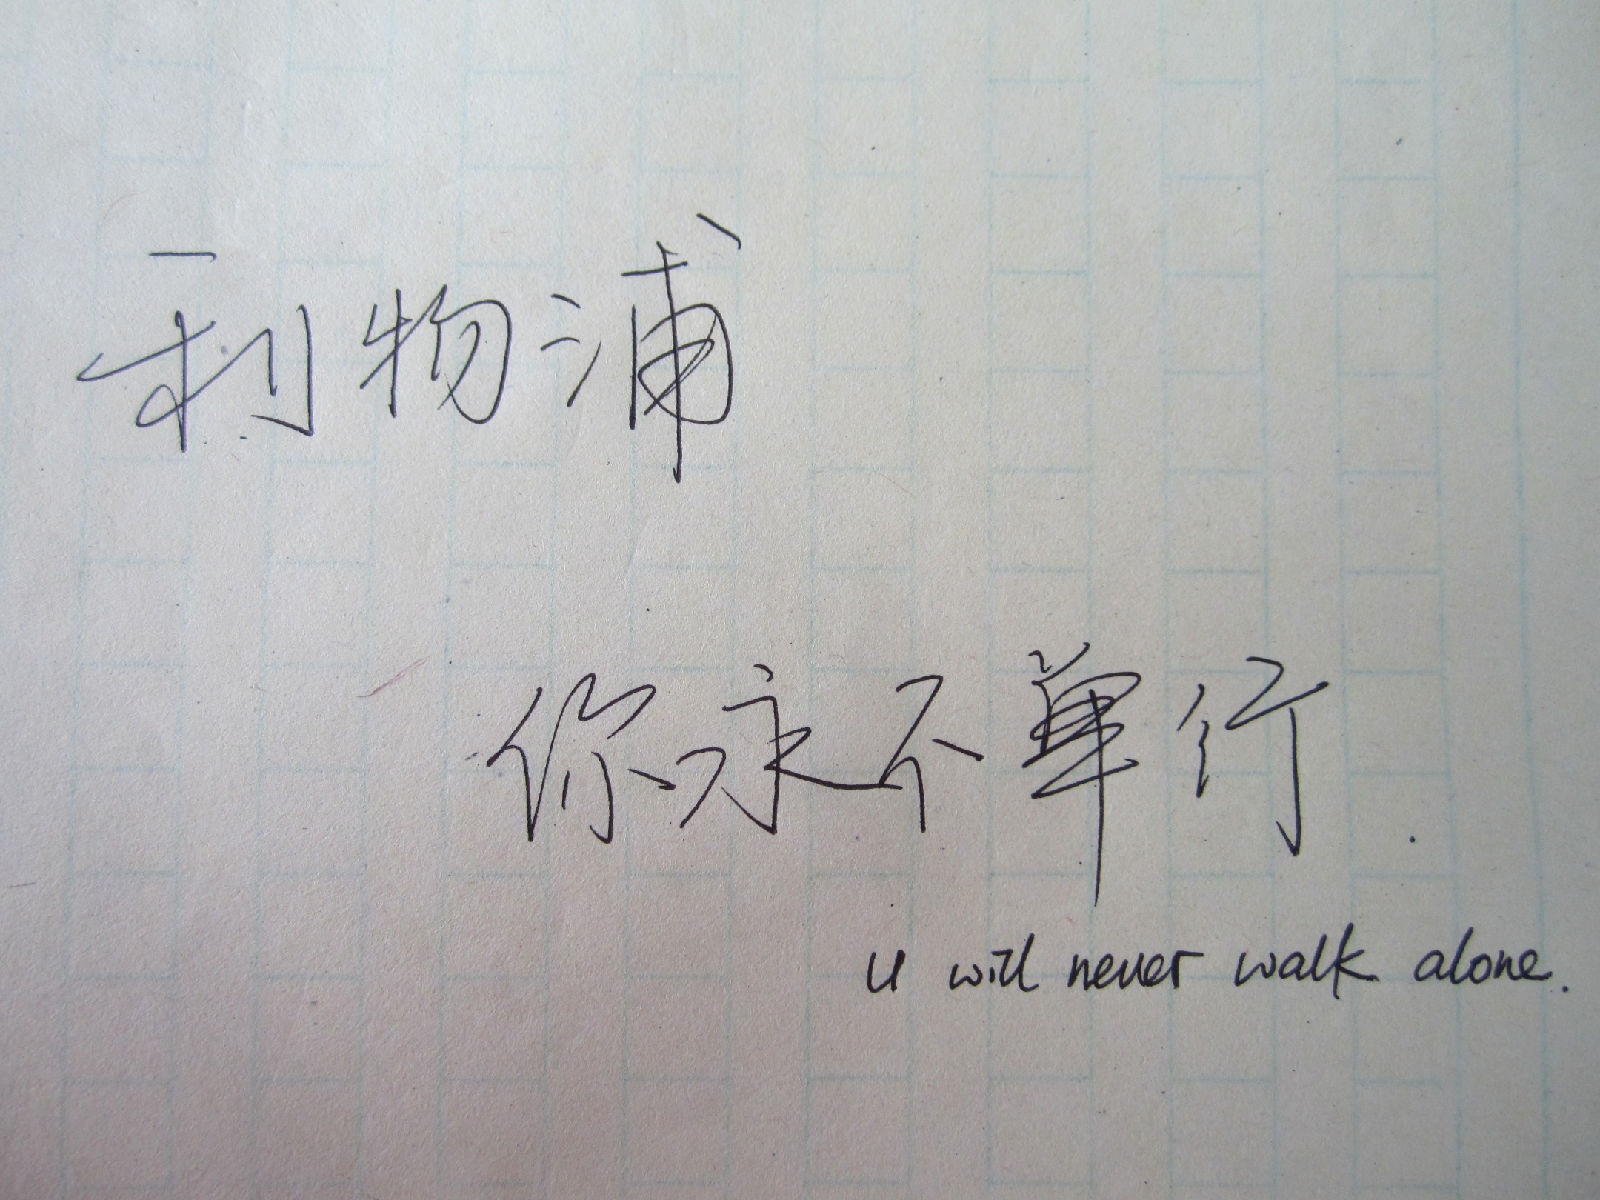 利物浦
你永不单行.
u will never walk alone.